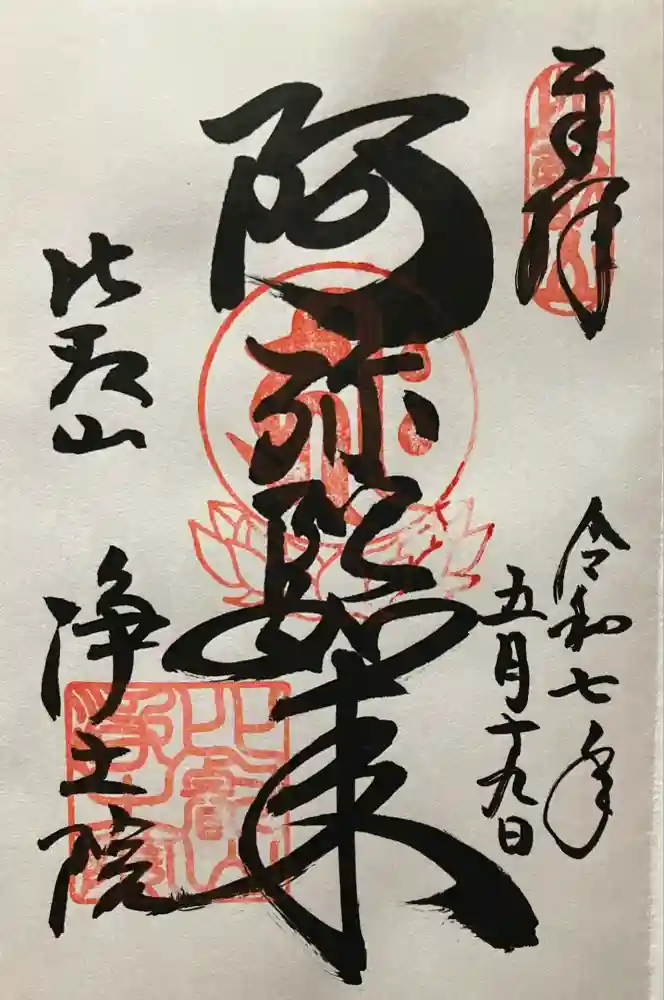 奉拝
令和七年
五月十九日
阿弥陀如来
比叡山
浄土院